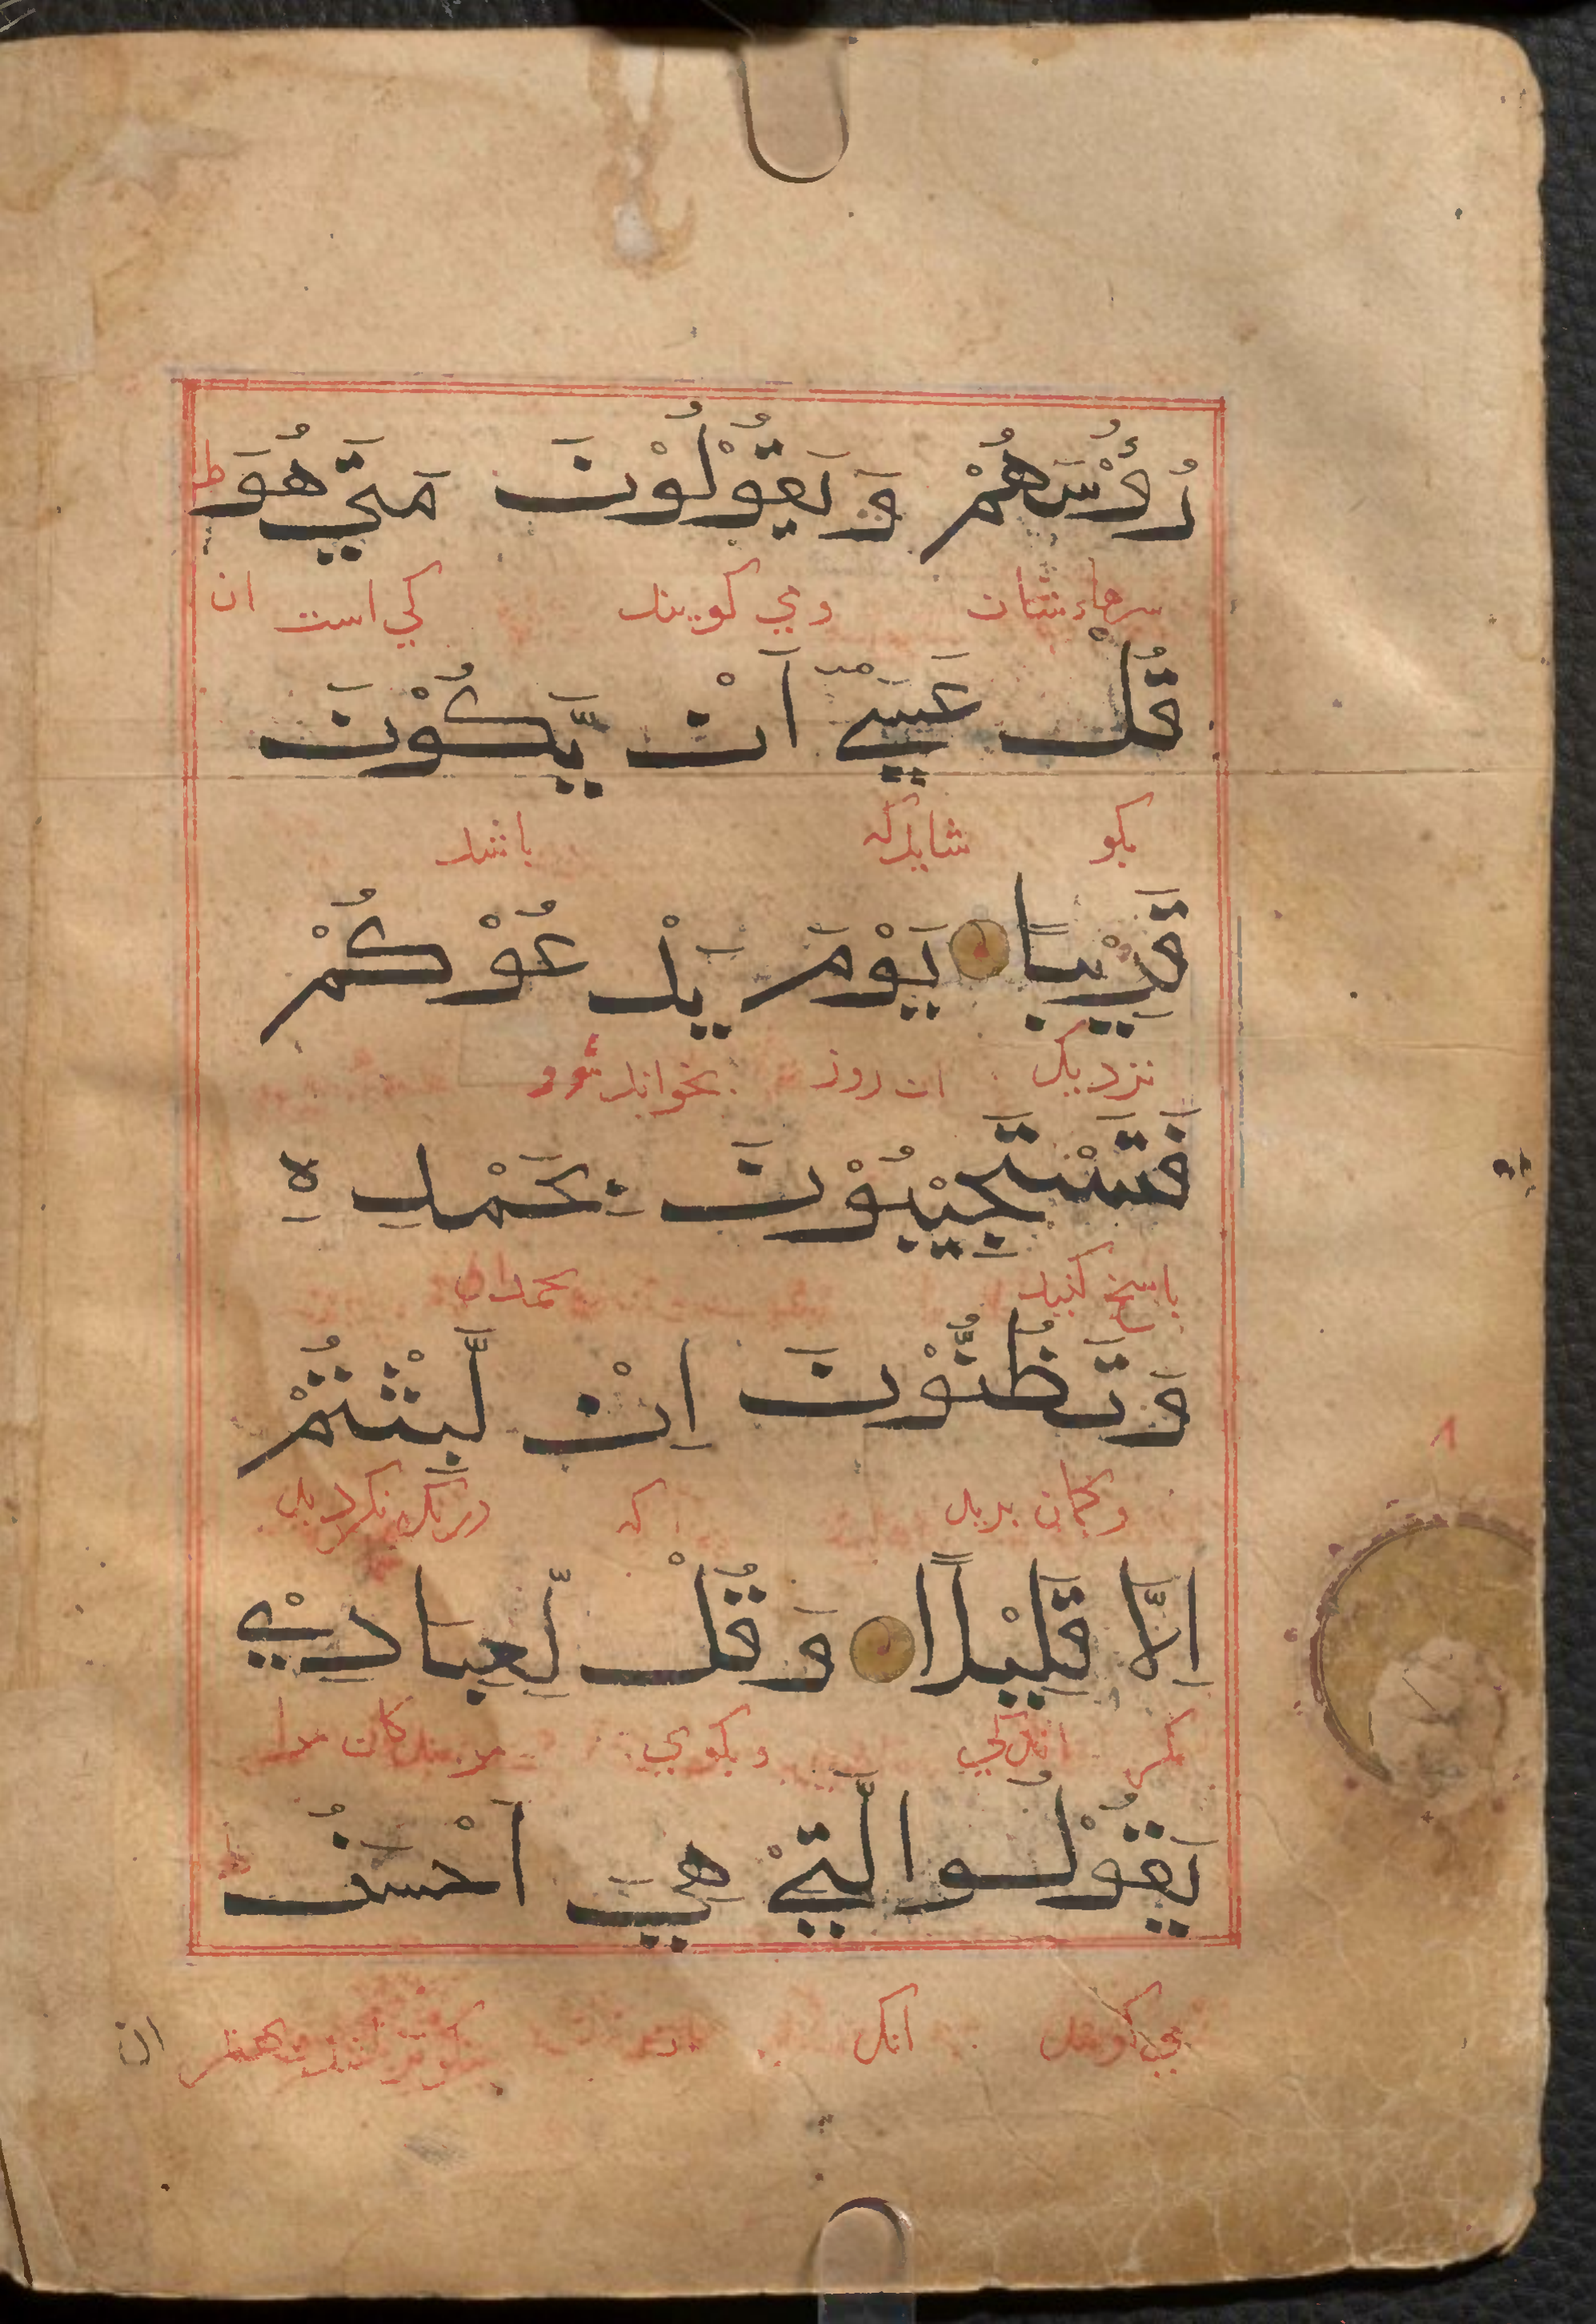 رُءُوْسَهُمْ وَ يَقُوْلُوْنَ مَتَيٰ هُوَ ط
سرهاء شان وي كويند كي است ان
قُلْ عَسَيٰٓ اَنْ يَّكُوْنَ
بكو شايدكه باشد
قَرِيْبًا يَوْمَ يَدْعُوْكُمْ
نزديك ان روز بخواند
فَتَسْتَجِيْبُوْنَ بِحَمْدِهٖ
پاسخ كنيد بحمدان
وَتَظُنُّوْنَ اِنْ لَّبِثْتُمْ
وكمان بريد كه درنك نكرديد
اِلَّا قَلِيْلًا وَ قُلْ لِّعِبَادِيْ
مكر اندكي وبكوي مر بندكان مرا
يَقُوْلُوا الَّتِيْ هِيَ اَحْسَنُ ط
مي كويند انك
ان